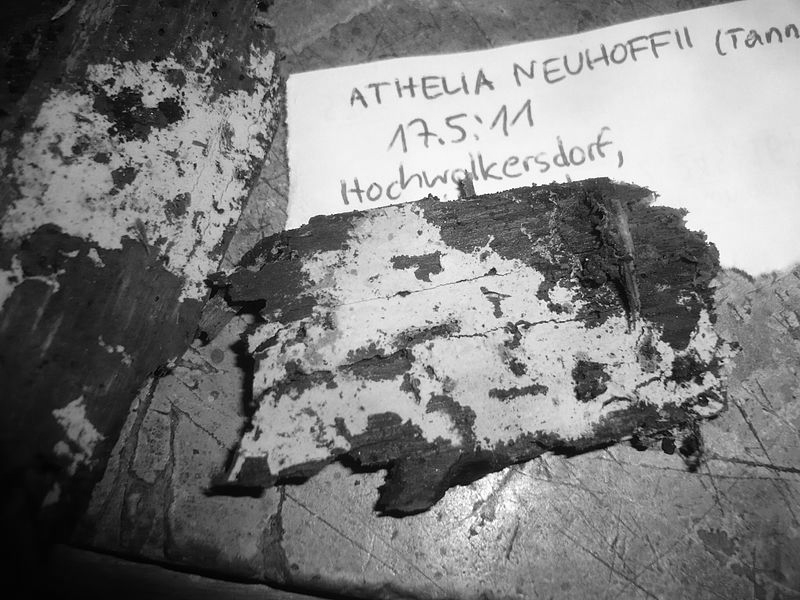 ATHELIA NEUHOFFII (Tann
17.5.11
Hochwolkersdorf,